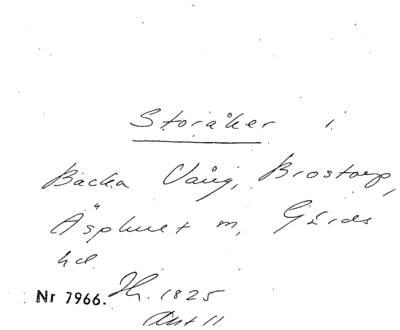 Storåker i
Backa Vång, Brostorp,
Äsphult m, Gärds
hd.
Nr 7966. Hr. 1825
Akt 11